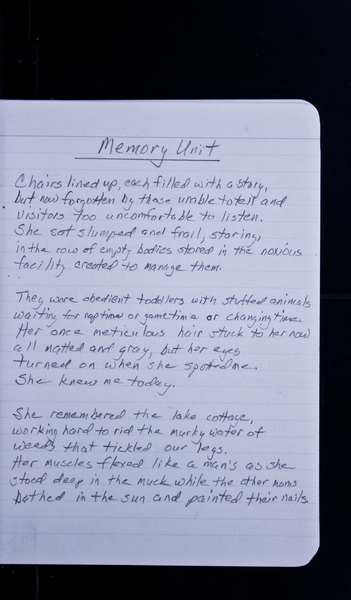 Memory Unit
Chairs lined up, each filled with a story,
but now forgotten by those unable to tell and
visitors too uncomfortable to listen.
She sat slumped and frail, staring,
in the row of empty bodies stored in the noxious
facility created to manage them.
They were obedient toddlers with stuffed animals
waiting for naptime or gametime or changing time.
Her once meticulous hair stuck to her now
all matted and gray, but her eyes
turned on when she spotted me.
She knew me today.
She remembered the lake cottage,
working hard to rid the murky water of
weeds that tickled our legs.
Her muscles flexed like a man's as she
stood deep in the muck while the other moms
bathed in the sun and painted their nails